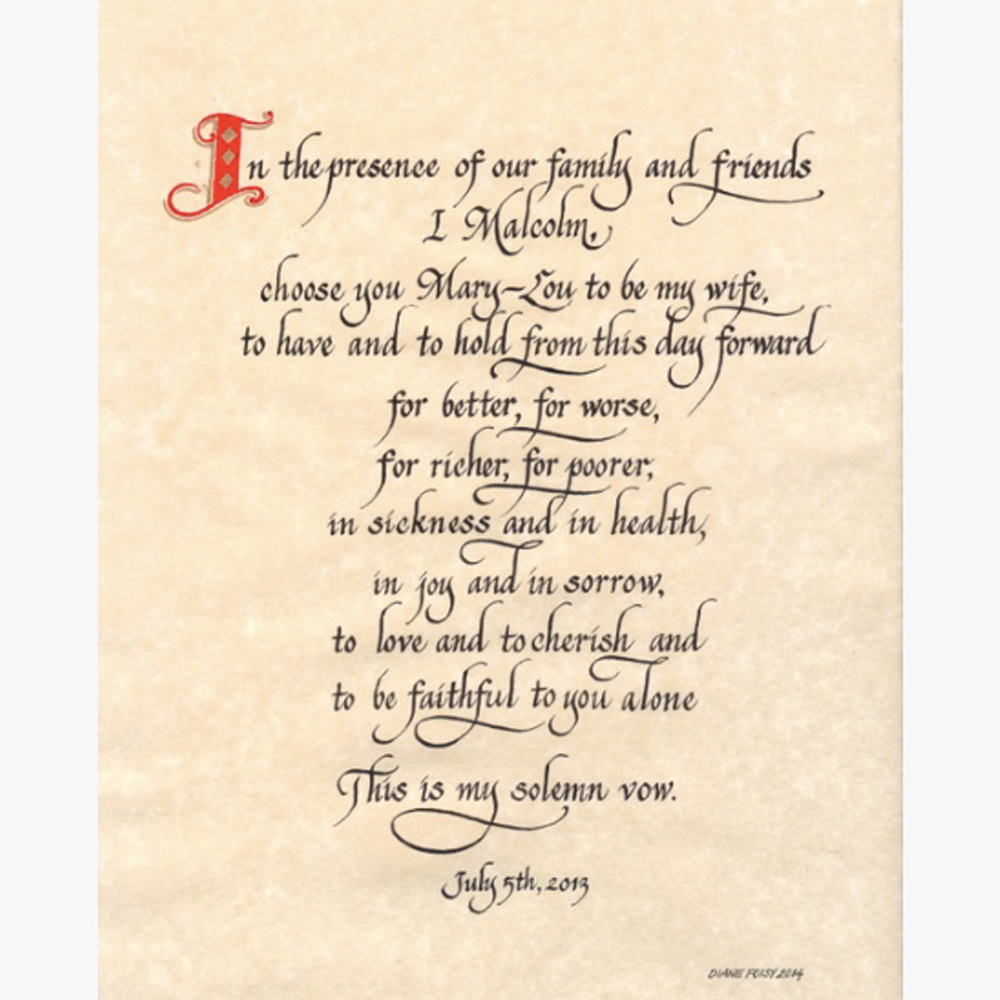 In the presence of our family and friends
I Malcolm,
choose you Mary-Lou to be my wife,
to have and to hold from this day forward
for better, for worse,
for richer, for poorer,
in sickness and in health,
in joy and in sorrow,
to love and to cherish and
to be faithful to you alone
This is my solemn vow.
July 5th, 2013
DIANE FOISY 2014